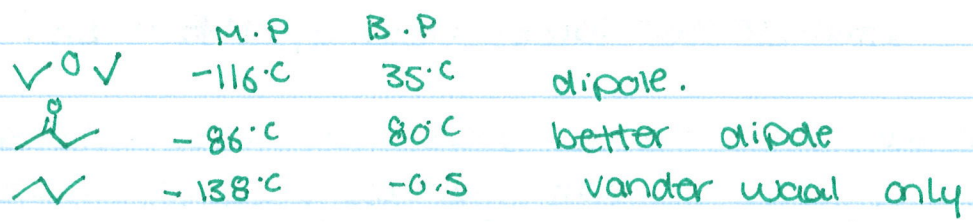 M.P B.P
O -116°C 35°C dipole.
O -86°C 80°C better dipole
-138°C -0.5 vander waal only